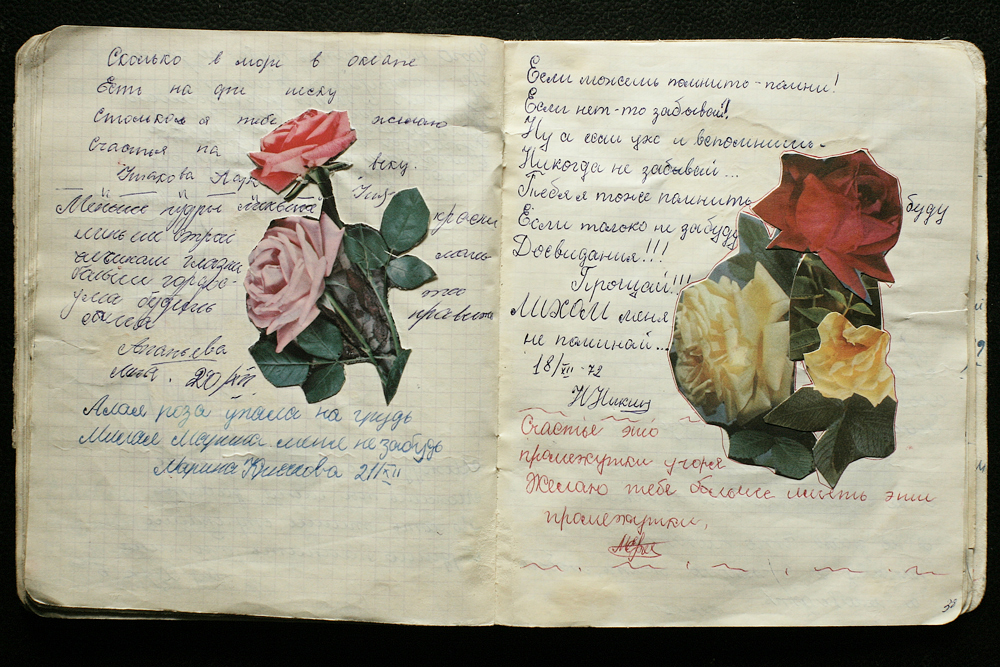 Сколько в мори в океане
Есть на дне песку
Столько я тебе желаю
Счастья на веку.
Меньше пудры меньше краски
меньше строй мальчикам глазки
больше гордости
ума будешь
Ананьева
20/XII
Алая роза упала на грудь
Милая Марина меня не забудь
Марина 21/XII
Если можешь помнить-помни!
Если нет-то забывай!
Ну а если уж и вспомнишь-
Никогда не забывай...
Тебя я тоже помнить буду
Если только не забуду
Досвидания!!!
Прощай!!!
ЛИХОМ меня
не поминай...
18/XII-72
Счастье это
промежутки горя
Желаю тебе больше иметь эти
промежутки.